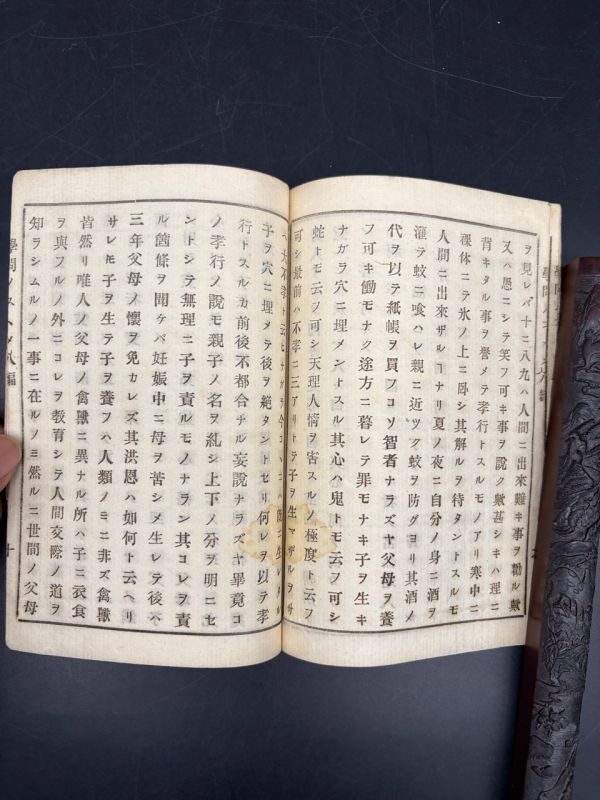 ヲ見レバ十ニ八九ハ人間ニ出來難キ事ヲ勸ル歟
又ハ愚ニシテ笑フ可キ事ヲ說ク歟甚シキハ理ニ
背キタル事ヲ譽メテ孝行トスルモノアリ寒中ニ
裸体ニテ氷ノ上ニ臥シ其解ルヲ待タントスルモ
人間ニ出來ザルヿナリ夏ノ夜ニ自分ノ身ニ酒ヲ
灌テ蚊ニ喰ハレ親ニ近ヅク蚊ヲ防グヨリ其酒ノ
代ヲ以テ紙帳ヲ買フコソ智者ナラズヤ父母ヲ養
フ可キ働モナク途方ニ暮レテ罪モナキ子ヲ生キ
ナガラ穴ニ埋メントスル其心ハ鬼トモ云フ可シ
蛇トモ云フ可シ天理人情ヲ害スルノ極度ト云フ
可シ最前ハ不孝ニ三アリトテ子ヲ生マザルヲサ
ヘ大不孝ト云ヒナガラ今
子ヲ穴ニ埋メテ後ヲ絶タントセリ何レヲ以テ孝
行トスルカ前後不都合ナル妄說ナラズヤ畢竟コ
ノ孝行ノ說モ親子ノ名ヲ糺シ上下ノ分ヲ明ニセ
ントシテ無理ニ子ヲ責ルモノナラン其コレヲ責
ル箇條ヲ聞ケバ妊娠中ニ母ヲ苦シメ生レテ後ハ
三年父母ノ懷ヲ免カレズ其洪恩ハ如何ト云ヘリ
サレモ子ヲ生テ子ヲ養フハ人類ノミニ非ズ禽獸
皆然リ唯人ノ父母ノ禽獸ニ異ナル所ハ子ニ衣食
ヲ與フルノ外ニコレヲ敎育シテ人間交際ノ道ヲ
知ラシムルノ一事ニ在ルノミ然ルニ世間ノ父母
學問ノスヽメ八編
十